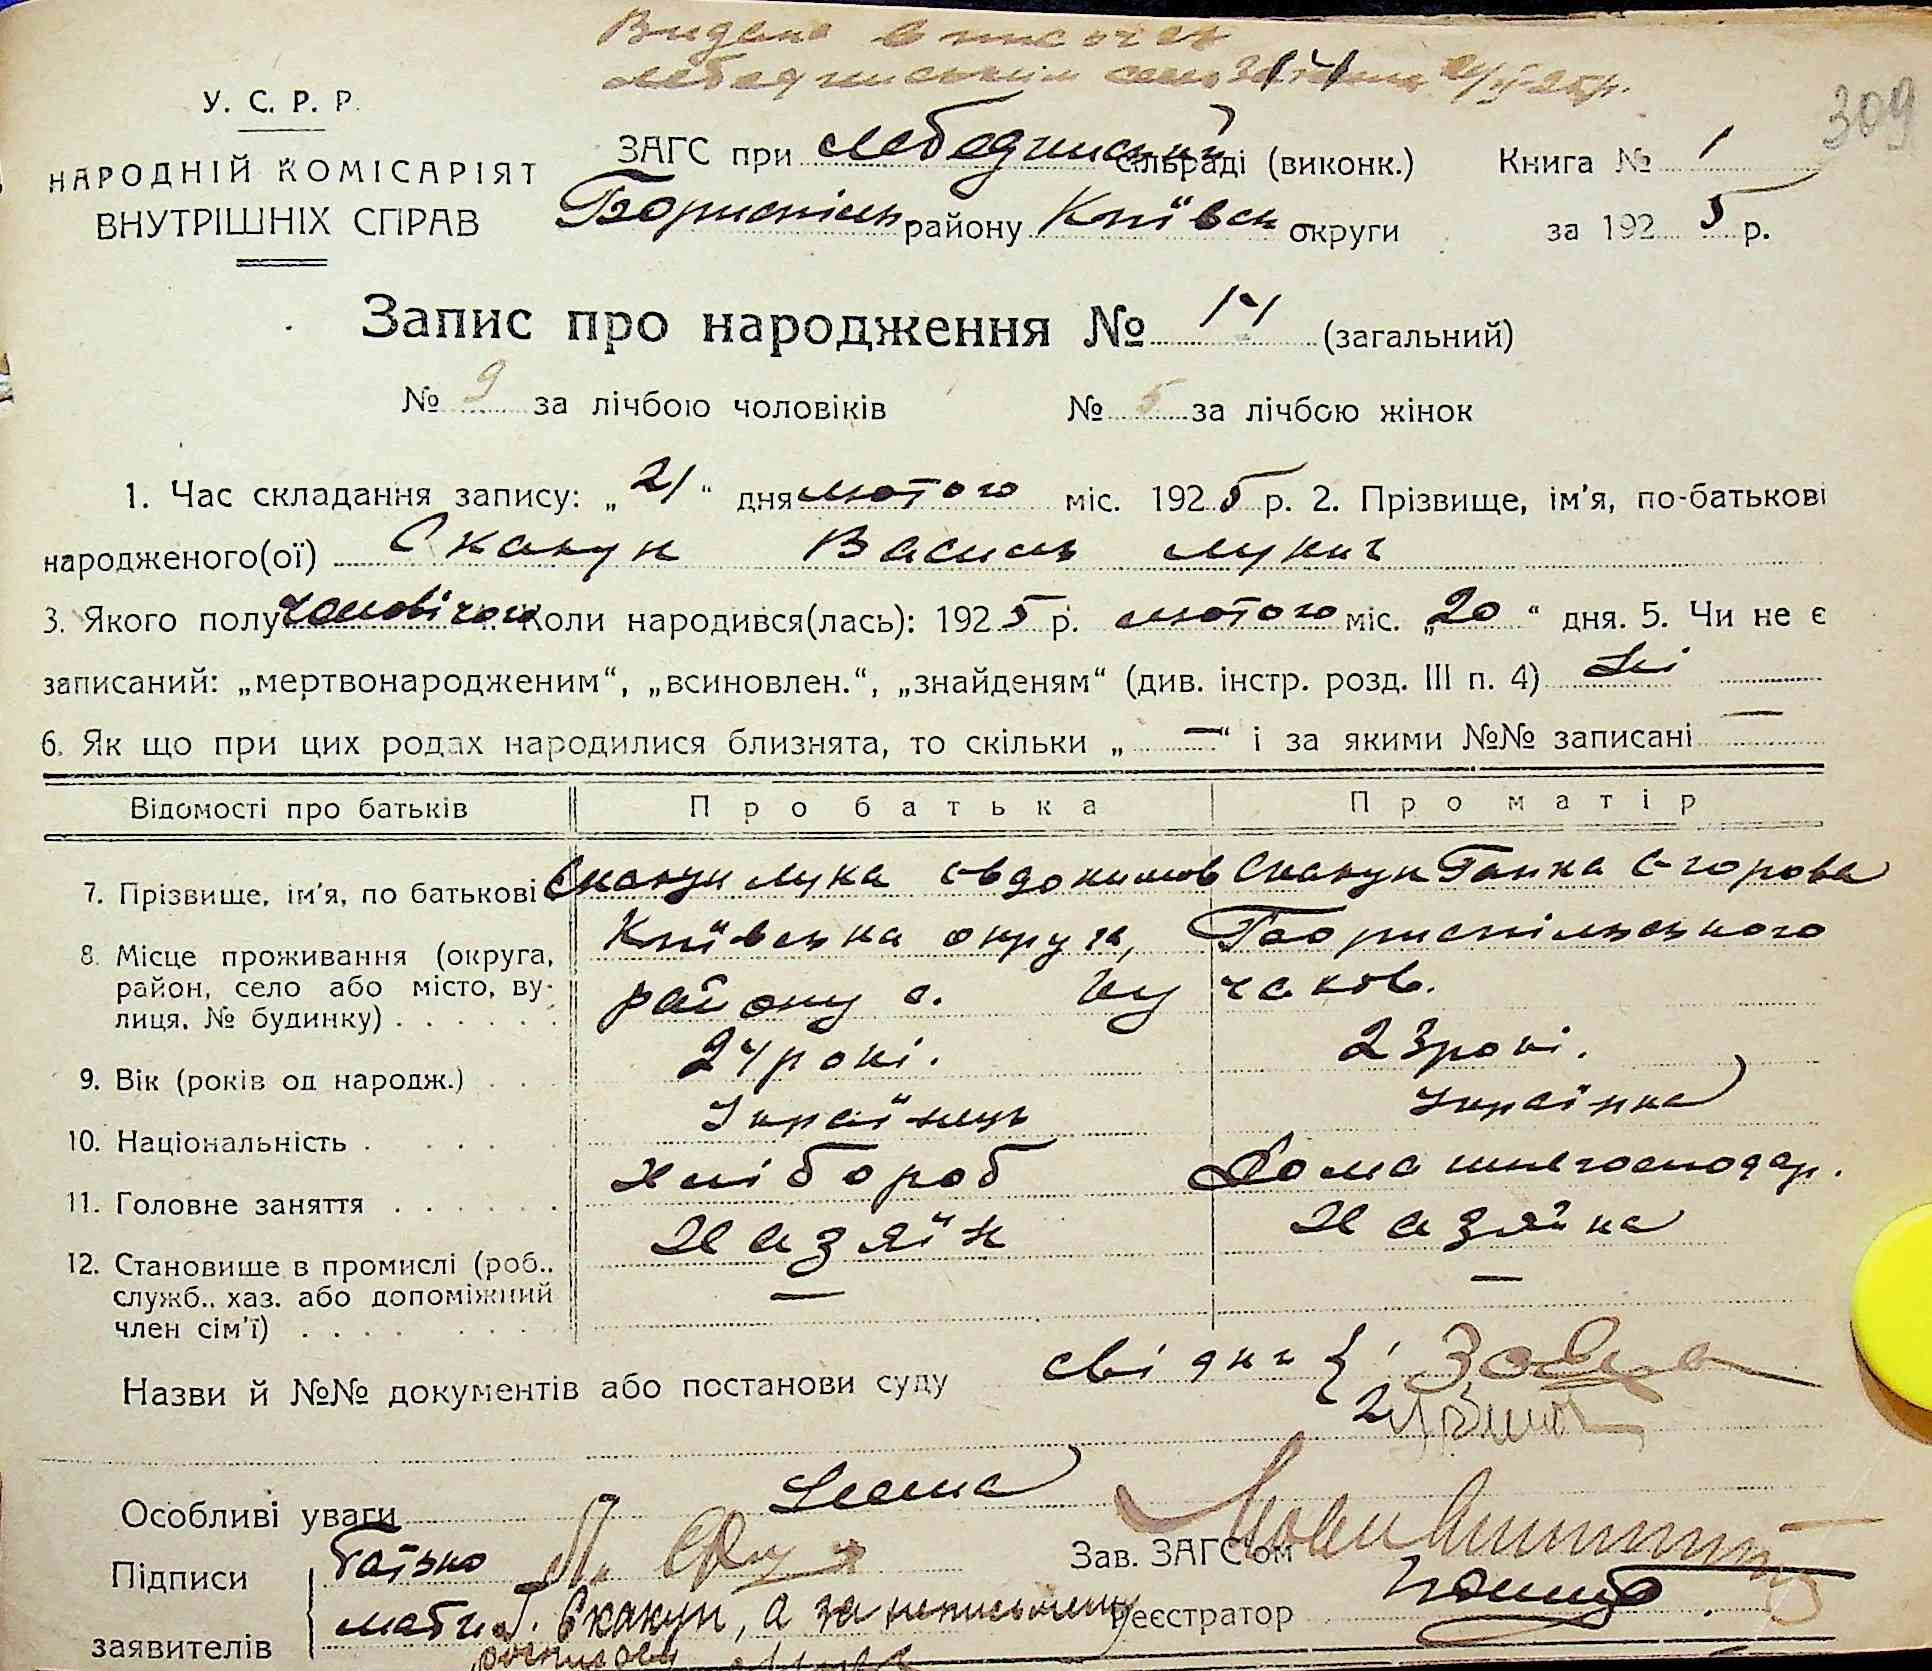 Видано виписочка
Лебединським 21/II-25р.
309
У. С. Р. Р.
НАРОДНІЙ КОМІСАРІЯТ
ВНУТРІШНІХ СПРАВ
ЗАГС при Лебединській сільраді (виконк.) Книга № 1
Бориспіль району Київськ округи за 1925 р.
Запис про народження № 14 (загальний)
№ 9 за лічбою чоловіків № 5 за лічбою жінок
1. Час складання запису: „21“ дня лютого міс. 1925 р. 2. Прізвище, ім'я, по-батькові
народженого(ої) Скакун Василь Лукич
3. Якого полу чоловічого Коли народився(лась): 1925 р. лютого міс. „20“ дня. 5. Чи не є
записаний: „мертвонародженим“, „всиновлен.“, „знайденям“ (див. інстр. розд. III п. 4) Ні
6. Як що при цих родах народилися близнята, то скільки „—“ і за якими №№ записані —
Відомості про батьків Про батька Про матір
7. Прізвище, ім'я, по батькові Скакун Лука Овдокимов Скакун Ганна Єгорова
8. Місце проживання (округа, район, село або місто, ву-
лиця, № будинку) Київська округа, Бориспільського
району с. Кучаков.
9. Вік (років од народж.) 24 рокі. 23 рокі.
10. Національність Українець Українка
11. Головне заняття хлібороб Домашнє господар.
12. Становище в промислі (роб., Хазяїн Хазяйка
служб., хаз. або допоміжний — —
член сім'ї)
Назви й №№ документів або постанови суду свідки { 1
2
Особливі уваги Нема
Підписи Батько Л. Зав. ЗАГС'ом
заявителів мати Г. Скакун, а за неписьмену Реєстратор